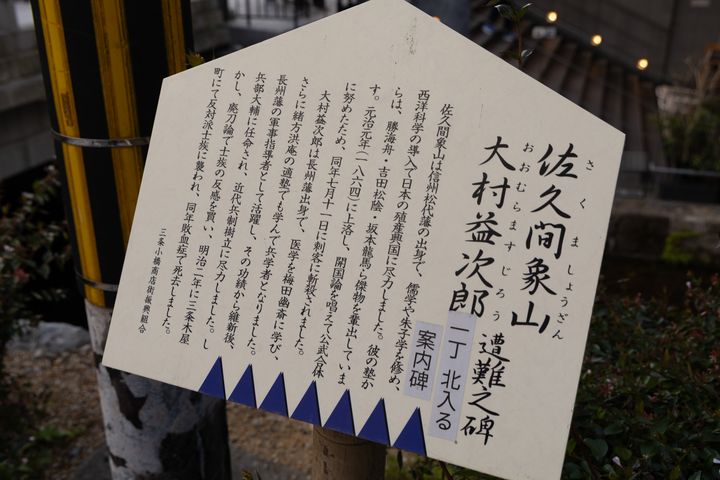 さくましょうざん
佐久間象山
おおむらますじろう
大村益次郎 遭難之碑
一丁 北入る
案内碑
佐久間象山は信州松代藩の出身で、儒学や朱子学を修め、
西洋科学の導入で日本の殖産興国に尽力しました。彼の塾か
らは、勝海舟・吉田松陰・坂本龍馬ら傑物を輩出していま
す。元治元年(一八六四)に上落し、開国論を唱えて公武合体
に努めたため、同年七月十一日に刺客に斬殺されました。
大村益次郎は長州藩出身で、医学を梅田幽斎に学び、
さらに緒方洪庵の適塾でも学んで兵学者となりました。
長州藩の軍事指導者として活躍し、その功績から維新後、
兵部大輔に任命され、近代兵制樹立に尽力しました。し
かし、廃刀論で士族の反感を買い、明治二年に三条木屋
町にて反対派士族に襲われ、同年敗血症で死去しました。
三条小橋商店街振興組合